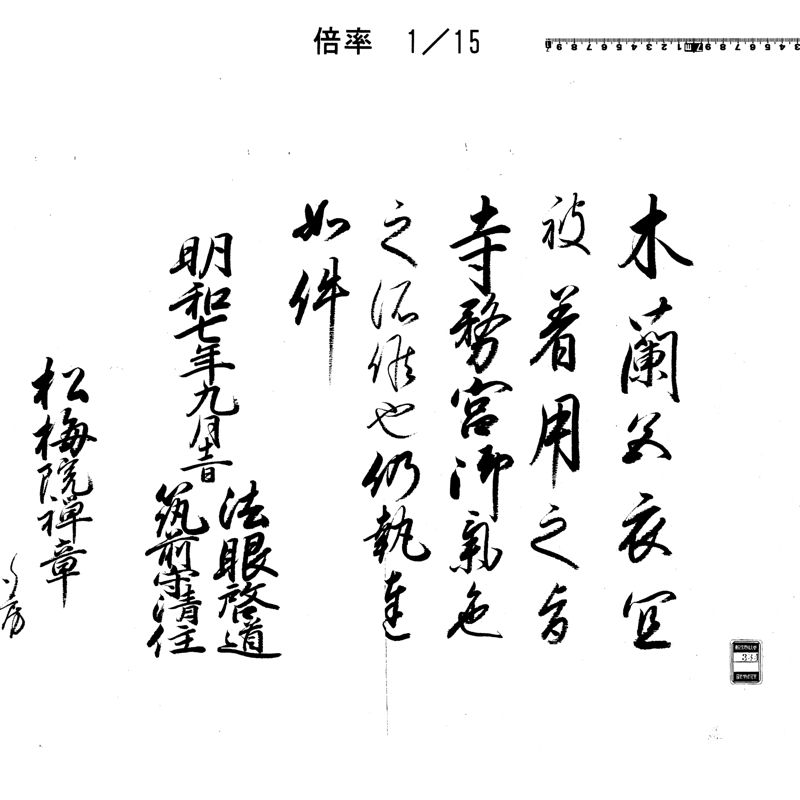 倍率 1/15
木蘭色衣宜
被着用之旨
寺務宮御氣色
之所候也仍執達
如件
明和七年九月十二日
法眼啓道
筑前守清住
松梅院禅章